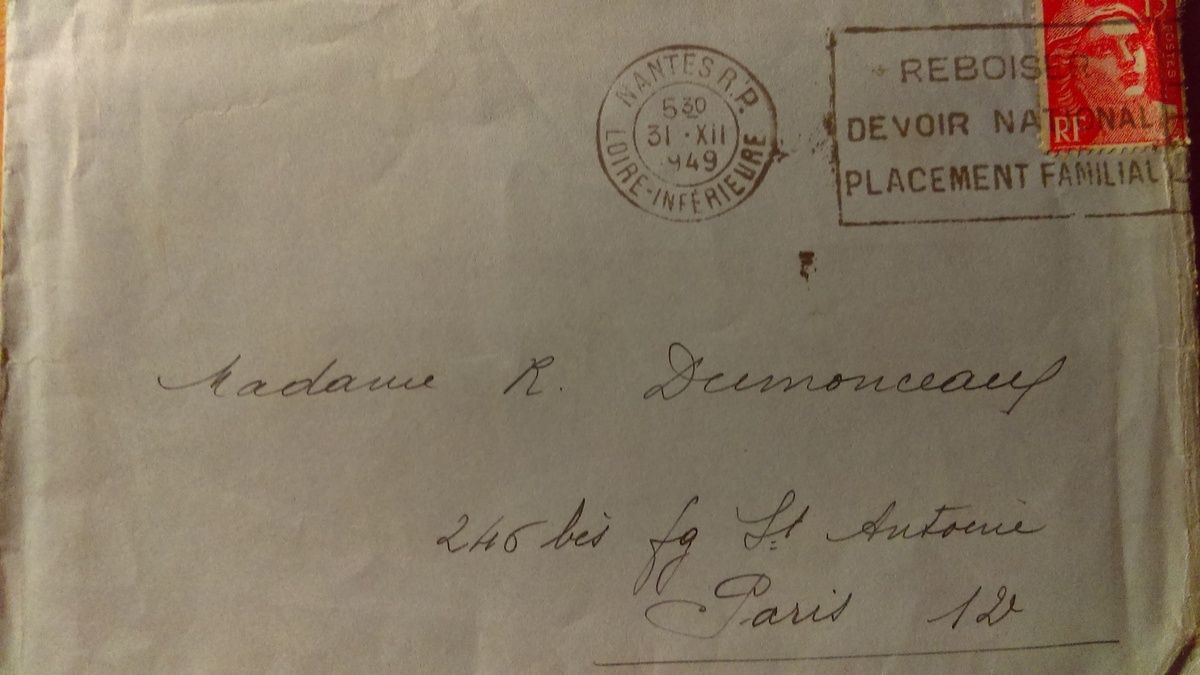 NANTES R.P.
5 30
31 · XII
1949
LOIRE-INFÉRIEURE
REBOISER
DEVOIR NATIONAL
PLACEMENT FAMILIAL
15F
POSTES
RF
Madame R. Dumonceaux
246 bis fg St Antoine
Paris 12e